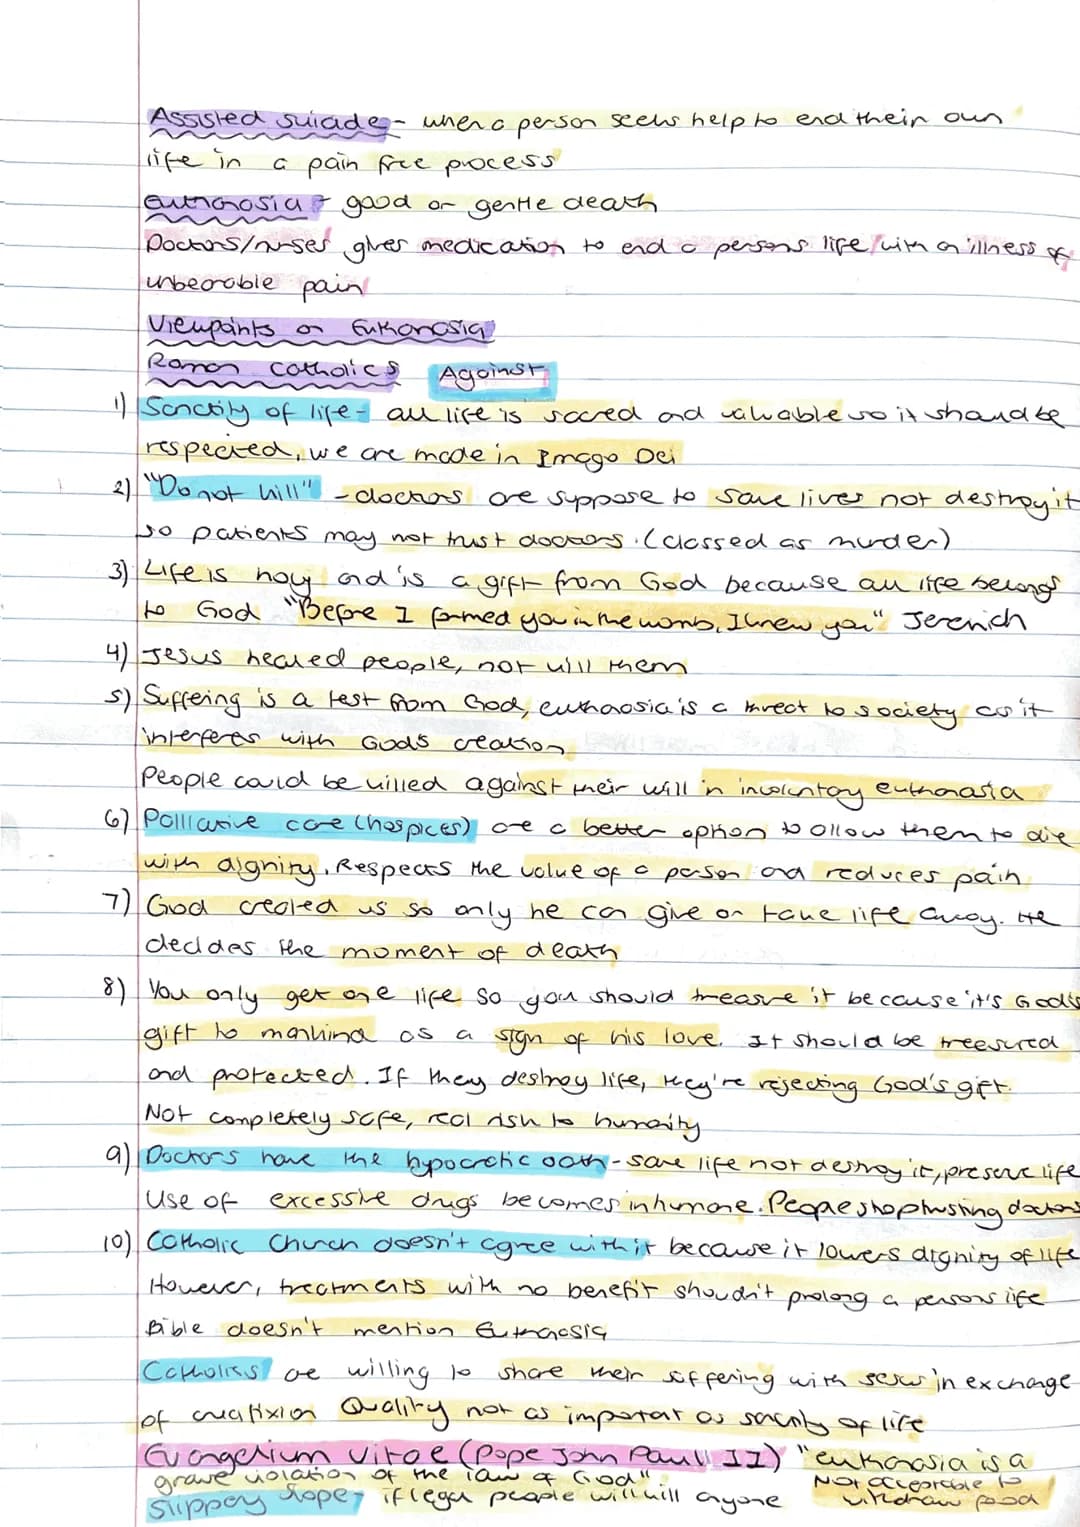 Assisted suicide - when a person seeks help to end their own
life in a pain free process
Euthanasia - good or gentle death
Doctors/nurses gives medication to end a persons life with a illness of
unbearable pain
Viewpoints on Euthanasia
Roman Catholics Against
1) Sanctity of life - all life is sacred and valuable so it should be
respected, we are made in Imago Dei
2) "Do not kill" - doctors are suppose to save lives not destroy it
so patients may not trust doctors. (classed as murder)
3) Life is holy and is a gift from God because all life belongs
to God "Before I formed you in the womb, I knew you" Jeremich
4) Jesus healed people, not kill them
5) Suffering is a test from God, euthanasia is a threat to society as it
interferes with God's creation
People could be killed against their will in involuntary euthanasia
6) Palliative care (hospices) are a better option to allow them to die
with dignity. Respects the value of a person and reduces pain
7) God created us so only he can give or take life away. He
decides the moment of death
8) You only get one life so you should treasure it because it's God's
gift to mankind as a sign of his love. It should be treesured
and protected. If they destroy life, they're rejecting God's gift.
Not completely safe, real risk to humanity
9) Doctors have the hypocratic oath - save life not destroy it, preserve life
Use of excessive drugs becomes inhumane. People stop trusting doctors
10) Catholic Church doesn't agree with it because it lowers dignity of life
However, treatments with no benefit shouldn't prolong a persons life
Bible doesn't mention Euthanasia
Catholics are willing to share their suffering with Jesus in exchange
of crucifixion Quality not as important as sanctity of life
Evangelium Vitae (Pope John Paul II) "euthanasia is a
grave violation of the law of God" Not acceptable to
Slippery slope - if legal people will kill anyone withdraw food